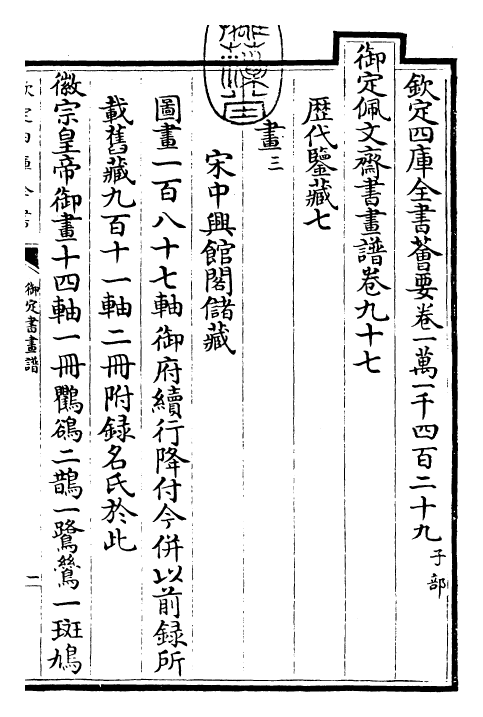 欽定四庫全書薈要卷一萬一千四百二十九子部
御定佩文齋書畫譜卷九十七
歴代鑒藏七
畫三
宋中興館閣儲藏
圖畫一百八十七軸御府續行降付今併以前録所
載舊藏九百十一軸二冊附録名氏於此
徽宗皇帝御畫十四軸一冊鸜鵒二鵲一鷺鷥一斑鳩
御定書畫譜
一